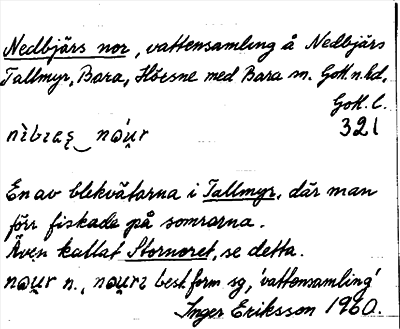 Nedbjärs nor, vattensamling å Nedbjärs
Tallmyr, Bara, Hörsne med Bara sn. Gotl. n. hd,
Gotl. l.
321
En av blekvätarna i Tallmyr, där man
förr fiskade på somrarna.
Även kallat Stornoret, se detta.
n., best form sg, 'vattensamling'
Inger Eriksson 1960.